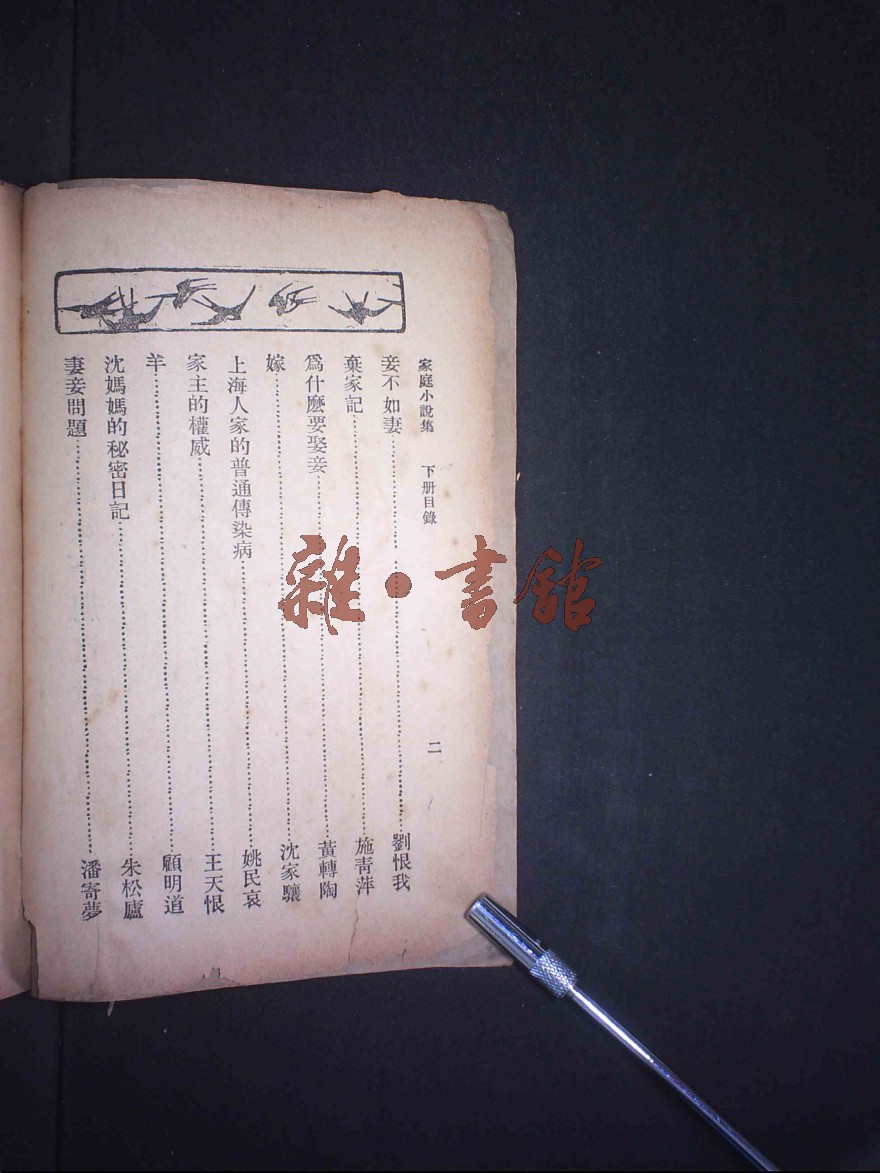 家庭小說集 下册目錄 二
妾不如妻……劉恨我
棄家記……施青萍
爲什麽要娶妾……黃轉陶
嫁……沈家驤
上海人家的普通傳染病……姚民哀
家主的權威……王天恨
羊……顧明道
沈媽媽的秘密日記……朱松廬
妻妾問題……潘寄夢
雜·書館